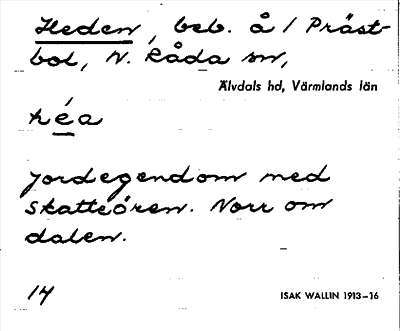 Heden, beb. å / Präst-
bol, N. Råda sn,
Älvdals hd, Värmlands län
héa
Jordegendom med
skatteören. Norr om
dalen.
14
ISAK WALLIN 1913–16